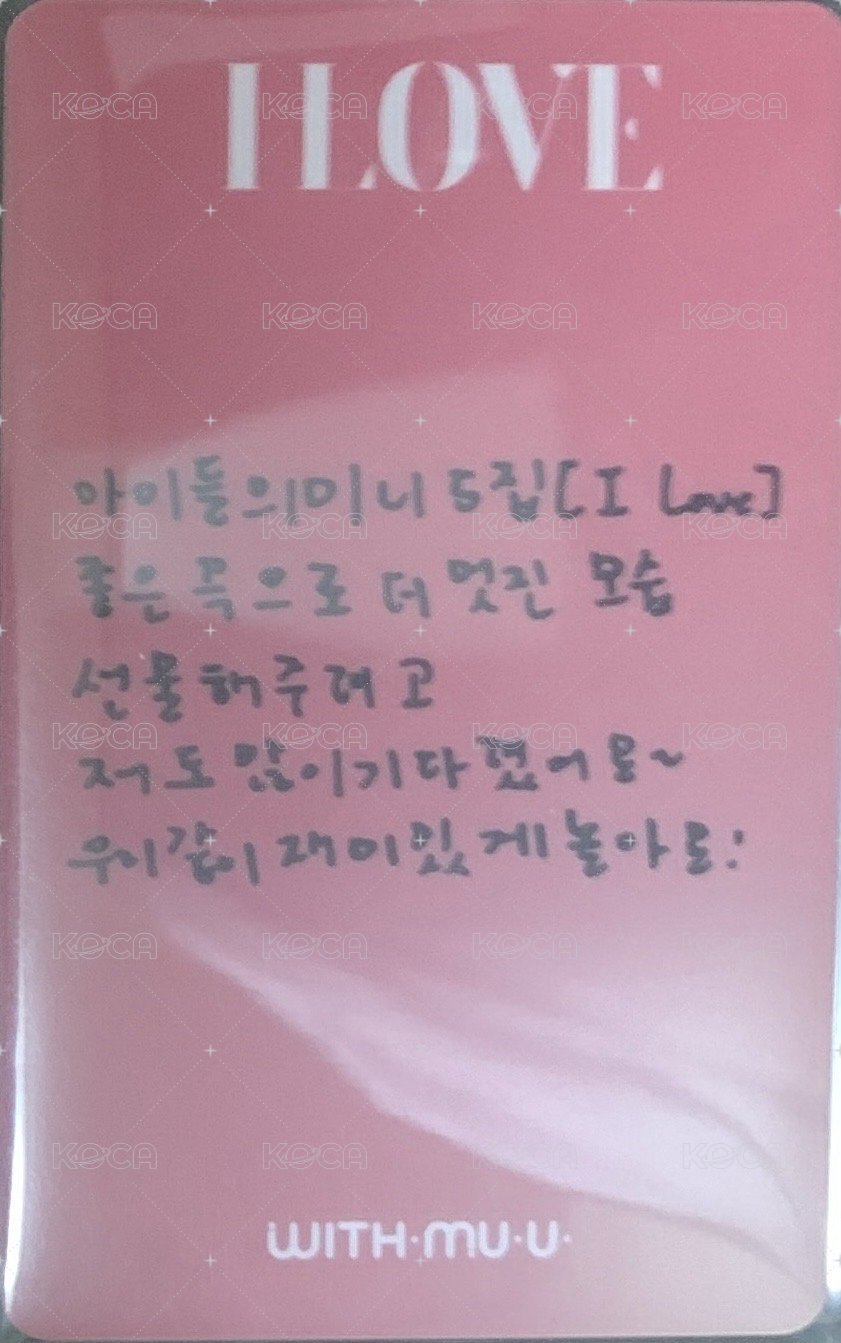 I LOVE
아이들의 미니 5집 [I Love]
좋은 곡으로 더 멋진 모습
선물해주려고
저도 많이 기다렸어요~
우리 같이 재미있게 놀아요!
WITH·MU·U·
KOCA